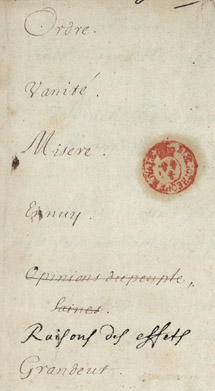 Ordre.
Vanité.
Misere.
Ennuy.
Opinions du peuple,
saines.
Raisons des effets
Grandeur.